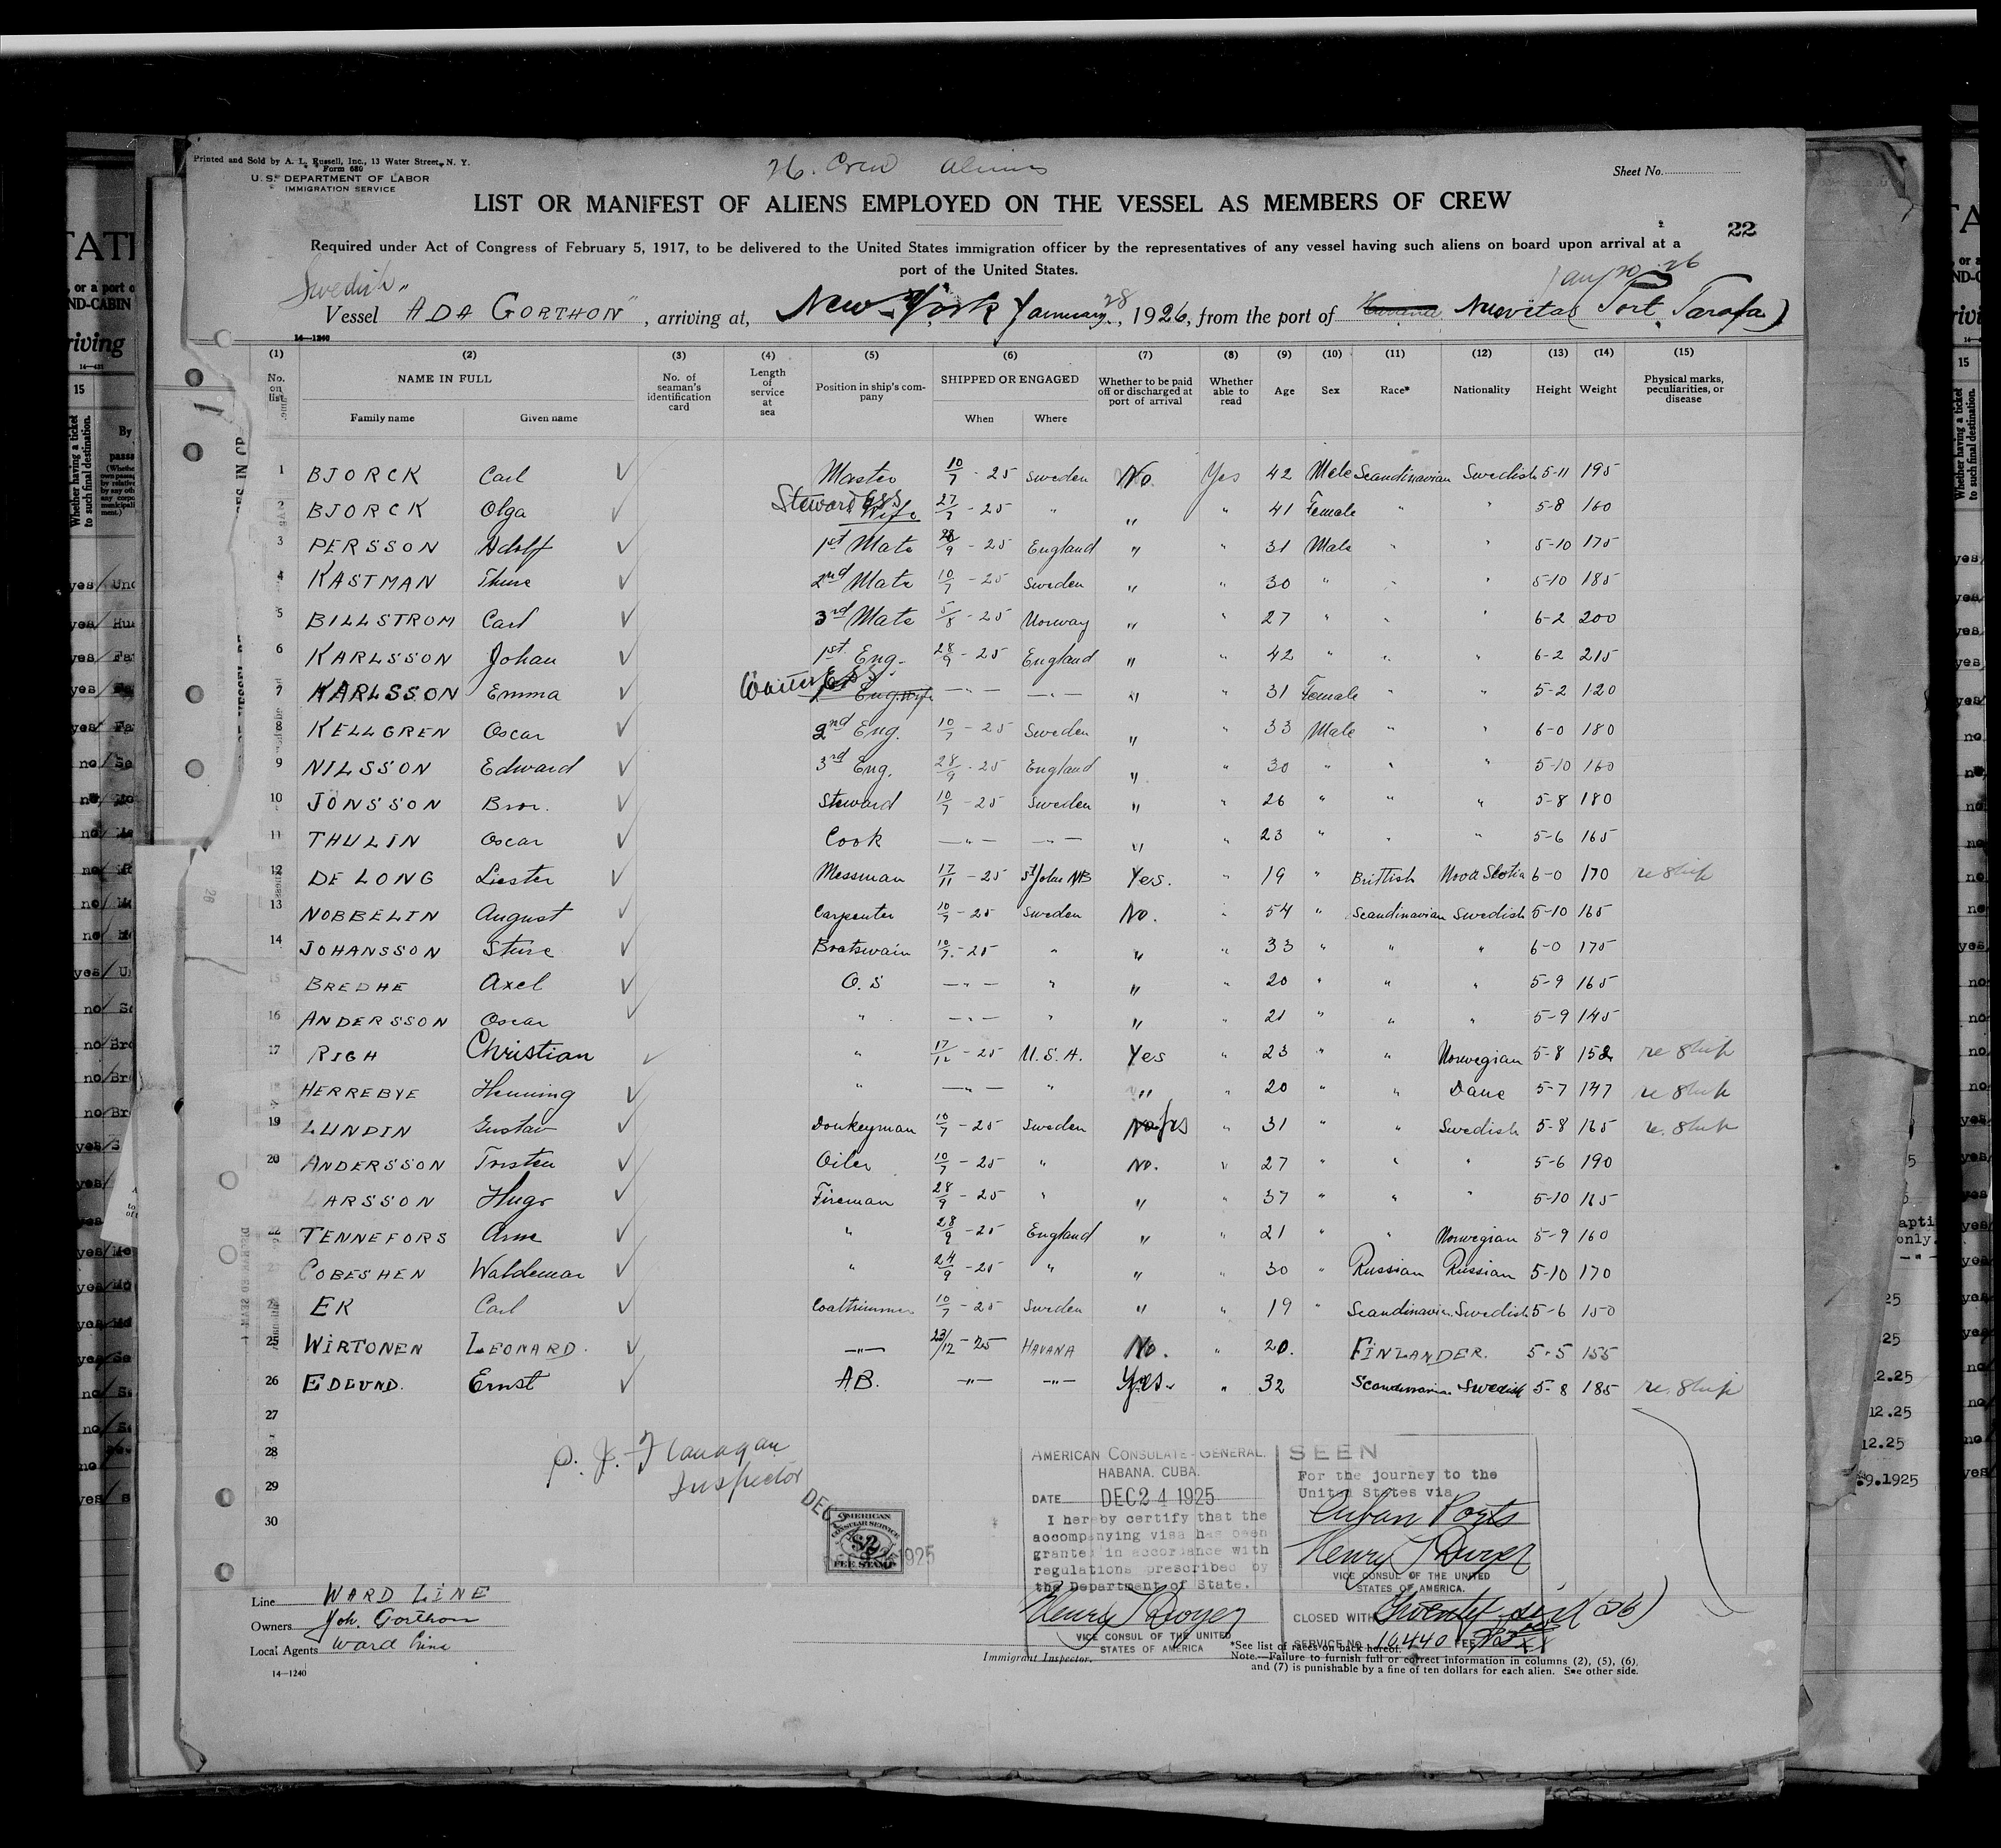 Printed and Sold by A. L. Russell, Inc., 13 Water Street, N. Y.
Form 680
U. S. DEPARTMENT OF LABOR
IMMIGRATION SERVICE
26. Crew Aliens
Sheet No.
LIST OR MANIFEST OF ALIENS EMPLOYED ON THE VESSEL AS MEMBERS OF CREW
22
Required under Act of Congress of February 5, 1917, to be delivered to the United States immigration officer by the representatives of any vessel having such aliens on board upon arrival at a
port of the United States.
Swedish
Vessel "ADA GORTHON", arriving at, New-York January 28, 1926, from the port of Havana Nuevitas (Port Tarafa)
14—1240
(1) (2) (3) (4) (5) (6) (7) (8) (9) (10) (11) (12) (13) (14) (15)
No. on list NAME IN FULL Family name Given name No. of seaman's identification card Length of service at sea Position in ship's company SHIPPED OR ENGAGED When Where Whether to be paid off or discharged at port of arrival Whether able to read Age Sex Race* Nationality Height Weight Physical marks, peculiarities, or disease
1 BJORCK Carl Master 10/7 - 25 Sweden No. Yes 42 Male Scandinavian Swedish 5-11 195
2 BJORCK Olga Stewardess Wife 27/7 - 25 " " " 41 Female " " 5-8 160
3 PERSSON Adolf 1st Mate 28/9 - 25 England " " 31 Male " " 5-10 175
4 KASTMAN Thure 2nd Mate 10/7 - 25 Sweden " " 30 " " " 5-10 185
5 BILLSTROM Carl 3rd Mate 5/8 - 25 Norway " " 27 " " " 6-2 200
6 KARLSSON Johan 1st Eng. 28/9 - 25 England " " 42 " " " 6-2 215
7 KARLSSON Emma Waitress Eng. wife —"— —"— " " 31 Female " " 5-2 120
8 KELLGREN Oscar 2nd Eng. 10/7 - 25 Sweden " " 33 Male " " 6-0 180
9 NILSSON Edward 3rd Eng. 28/9 - 25 England " " 30 " " " 5-10 160
10 JÖNSSON Bror. Steward 10/7 - 25 Sweden " " 26 " " " 5-8 180
11 THULIN Oscar Cook —"— —"— " " 23 " " " 5-6 165
12 DE LONG Liester Messman 17/11 - 25 St John NB Yes. " 19 " Brittish Nova Scotia 6-0 170 re ship
13 NOBBELIN August Carpenter 10/7 - 25 Sweden No. " 54 " Scandinavian Swedish 5-10 165
14 JOHANSSON Sture Boatswain 10/7 - 25 " " " 33 " " " 6-0 175
15 BREDHE Axel O.S —"— " " " 20 " " " 5-9 165
16 ANDERSSON Oscar " —"— " " " 21 " " " 5-9 145
17 RIGH Christian " 17/12 - 25 U.S.A. Yes " 23 " " Norwegian 5-8 152 re ship
18 HERREBYE Henning " —"— " " " 20 " " Dane 5-7 147 re ship
19 LUNDIN Gustav Donkeyman 10/7 - 25 Sweden No Yes " 31 " " Swedish 5-8 165 re. ship
20 ANDERSSON Tristen Oiler 10/7 - 25 " No. " 27 " " " 5-6 190
LARSSON Hugo Fireman 28/9 - 25 " " " 37 " " " 5-10 165
22 TENNEFORS Arne " 28/9 - 25 England " " 21 " " Norwegian 5-9 160
COBESHEN Waldemar " 24/9 - 25 " " " 30 " Russian Russian 5-10 170
EK Carl Coaltrimmer 10/7 - 25 Sweden " " 19 " Scandinavian Swedish 5-6 150
25 WIRTONEN LEONARD. —"— 23/12 - 25 HAVANA No. " 20. FINLANDER. 5-5 155
26 EDLUND. Ernst AB. —"— —"— Yes. " 32 Scandinavian Swedish 5-8 185 re. ship
27
28
29
30
P. J. Flanagan
Inspector
AMERICAN CONSULATE-GENERAL.
HABANA. CUBA.
DATE DEC 24 1925
I hereby certify that the
accompanying visa has been
granted in accordance with
regulations prescribed by
the Department of State.
Henry T Dwyer
VICE CONSUL OF THE UNITED
STATES OF AMERICA
SEEN
For the journey to the
United States via
Cuban Ports
Henry T Dwyer
VICE CONSUL OF THE UNITED
STATES OF AMERICA.
CLOSED WITH Twenty-six (26)
SERVICE No. 10440 FEE
AMERICAN
CONSULAR SERVICE
$2
FEE STAMP
1925
Line WARD LINE
Owners Joh. Gorthon
Local Agents Ward Line
14—1240
Immigrant Inspector.
*See list of races on back hereof.
Note.—Failure to furnish full or correct information in columns (2), (5), (6),
and (7) is punishable by a fine of ten dollars for each alien. See other side.